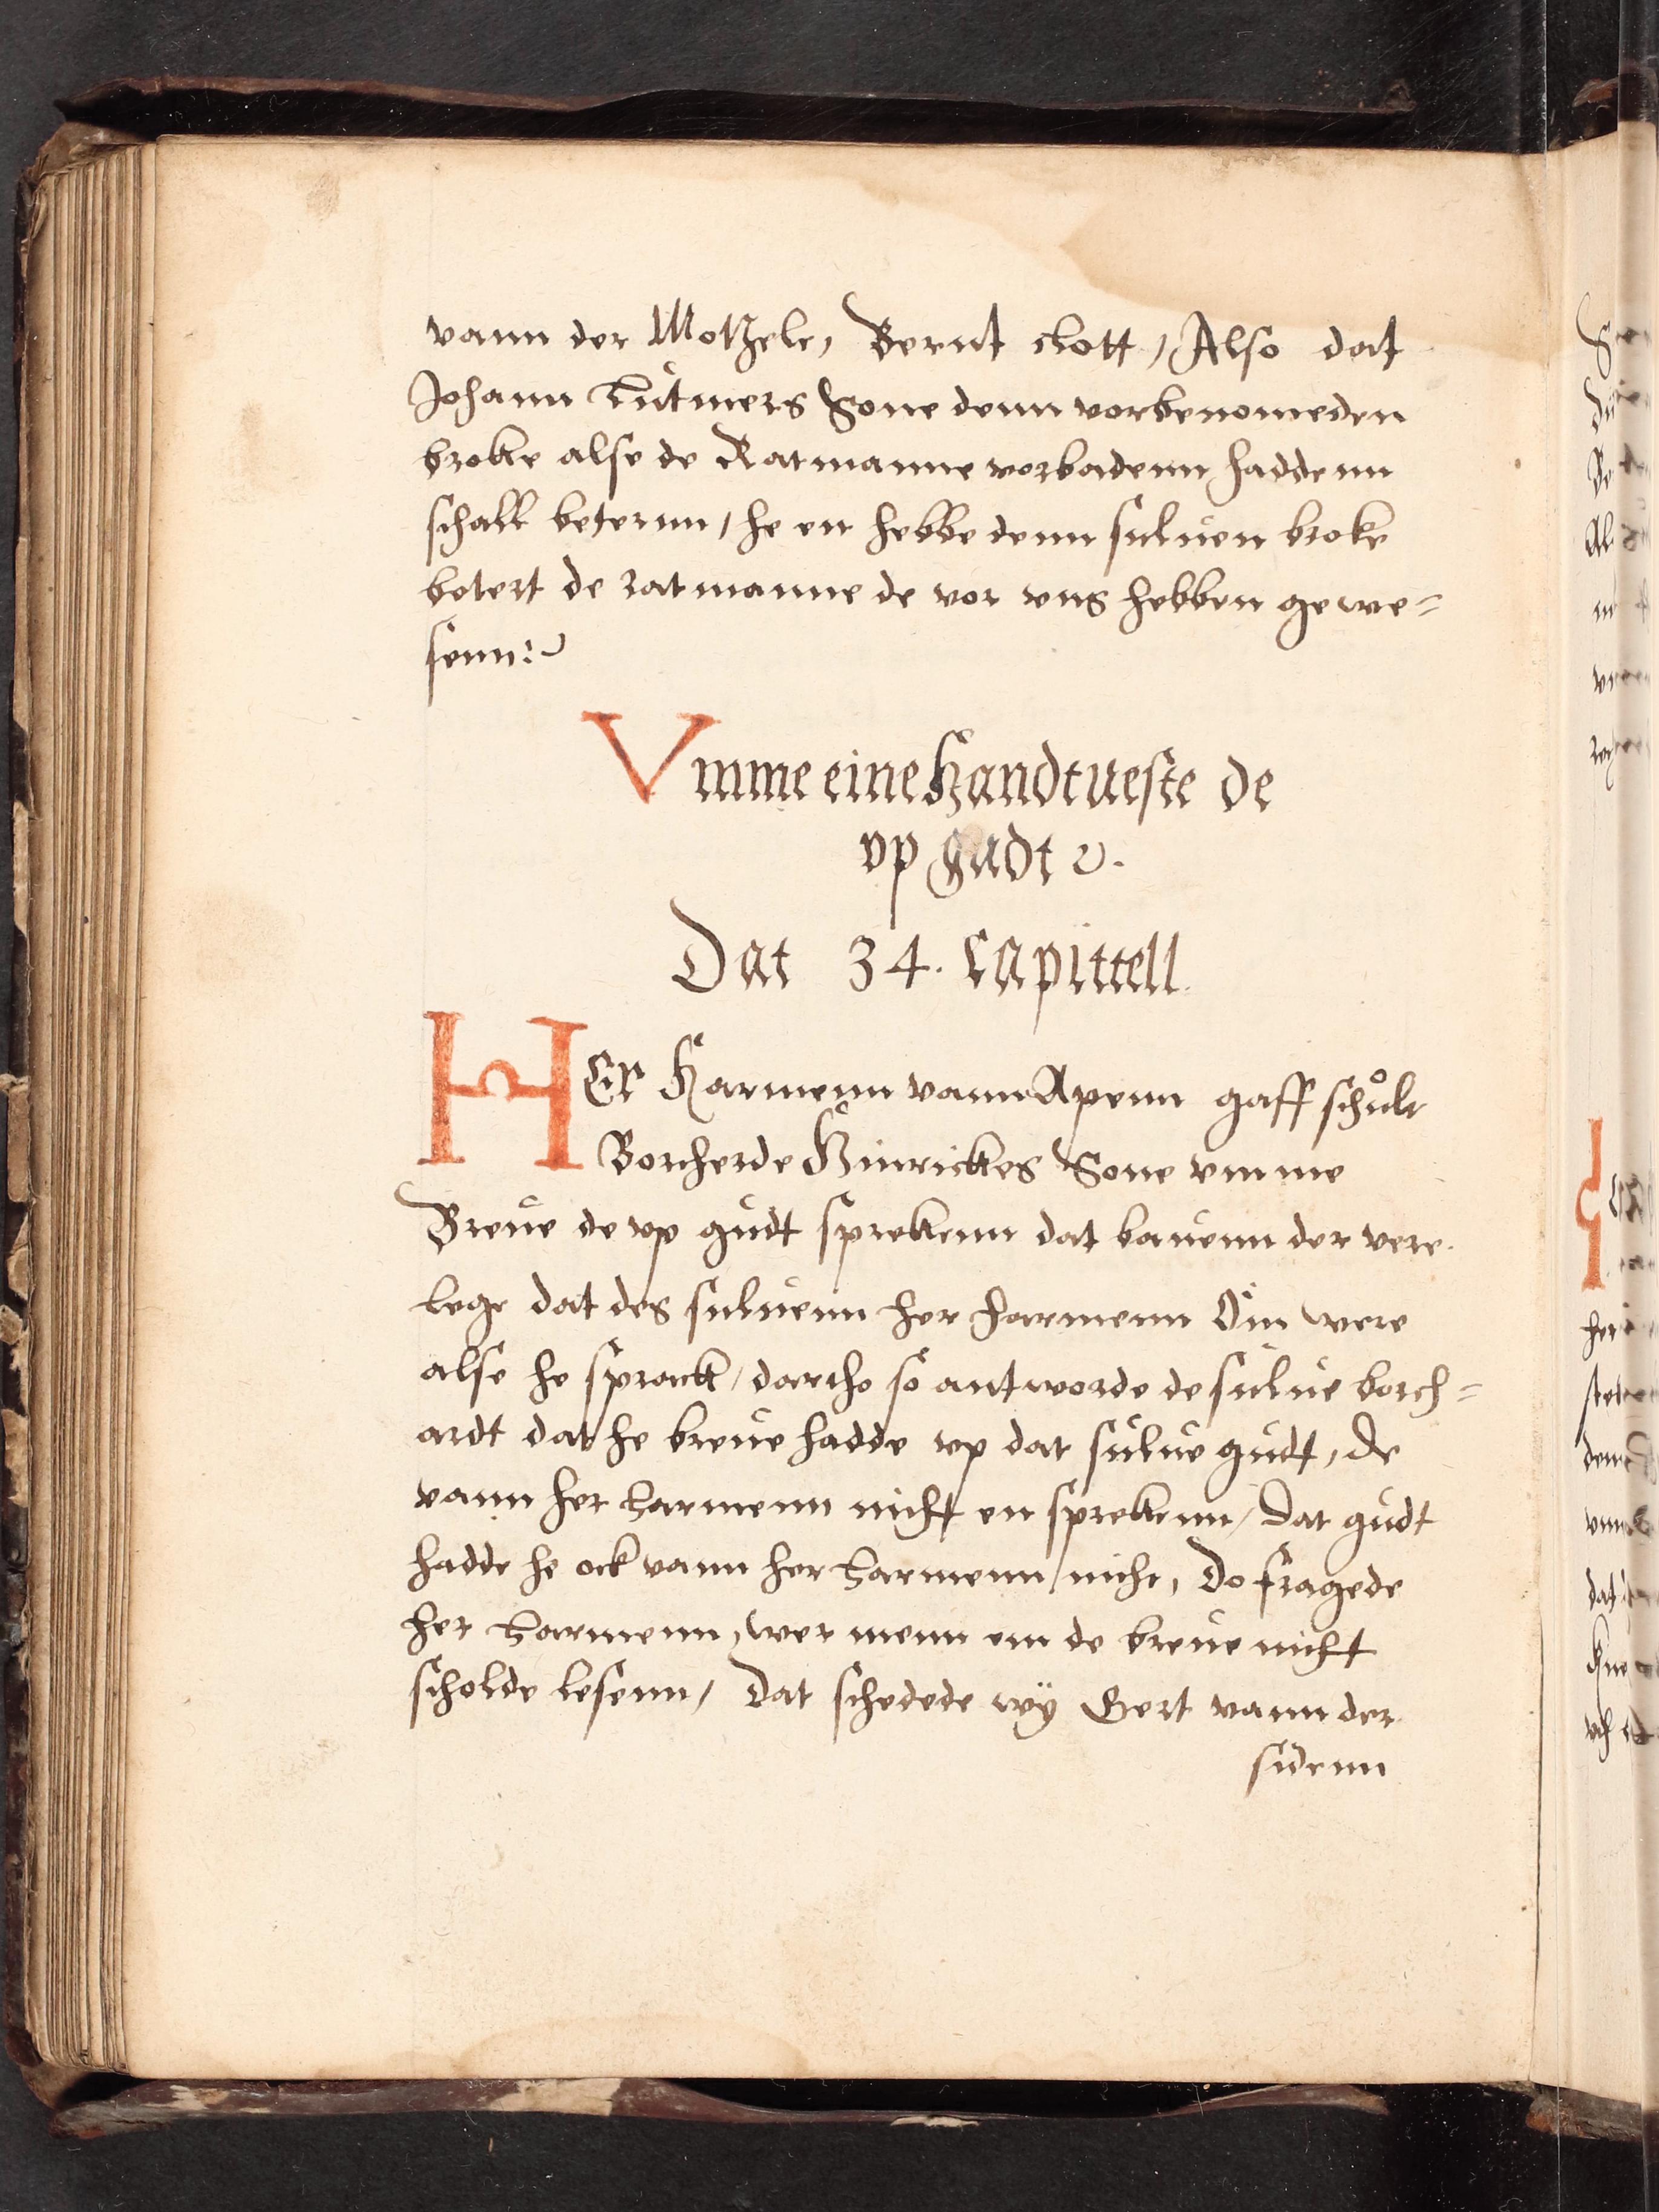 vann der Motzele, Bernt clott, Also dat
Johann Lutmers Sone denn vorbenomeden
broke alse de Ratmanne vorbadenn haddenn
schall beternn, he en hebbe denn suluen broke
betert de ratmanne de vor vns hebben gewe=
senn:
Vmme eine handtueste de
vp gudt
Dat 34. Capittell
HEr Harmenn vann Apenn gaff schult
Borcherde Hinrickes Sone vmme
Breue de vp gudt sprekenn dat bauenn der vere
lege dat des suluenn her harmenn Om were
alse he sprack, dartho so antworde de sulue borch=
ardt dat he breue hadde vp dat sulue gudt, de
vann her harmenn nicht en sprekenn, dat gudt
hadde he ock vann her harmenn nicht, Do fragede
her harmenn, wer menn em de breue nicht
scholde lesenn, Dat schedede wÿ Gert vann der
surnn